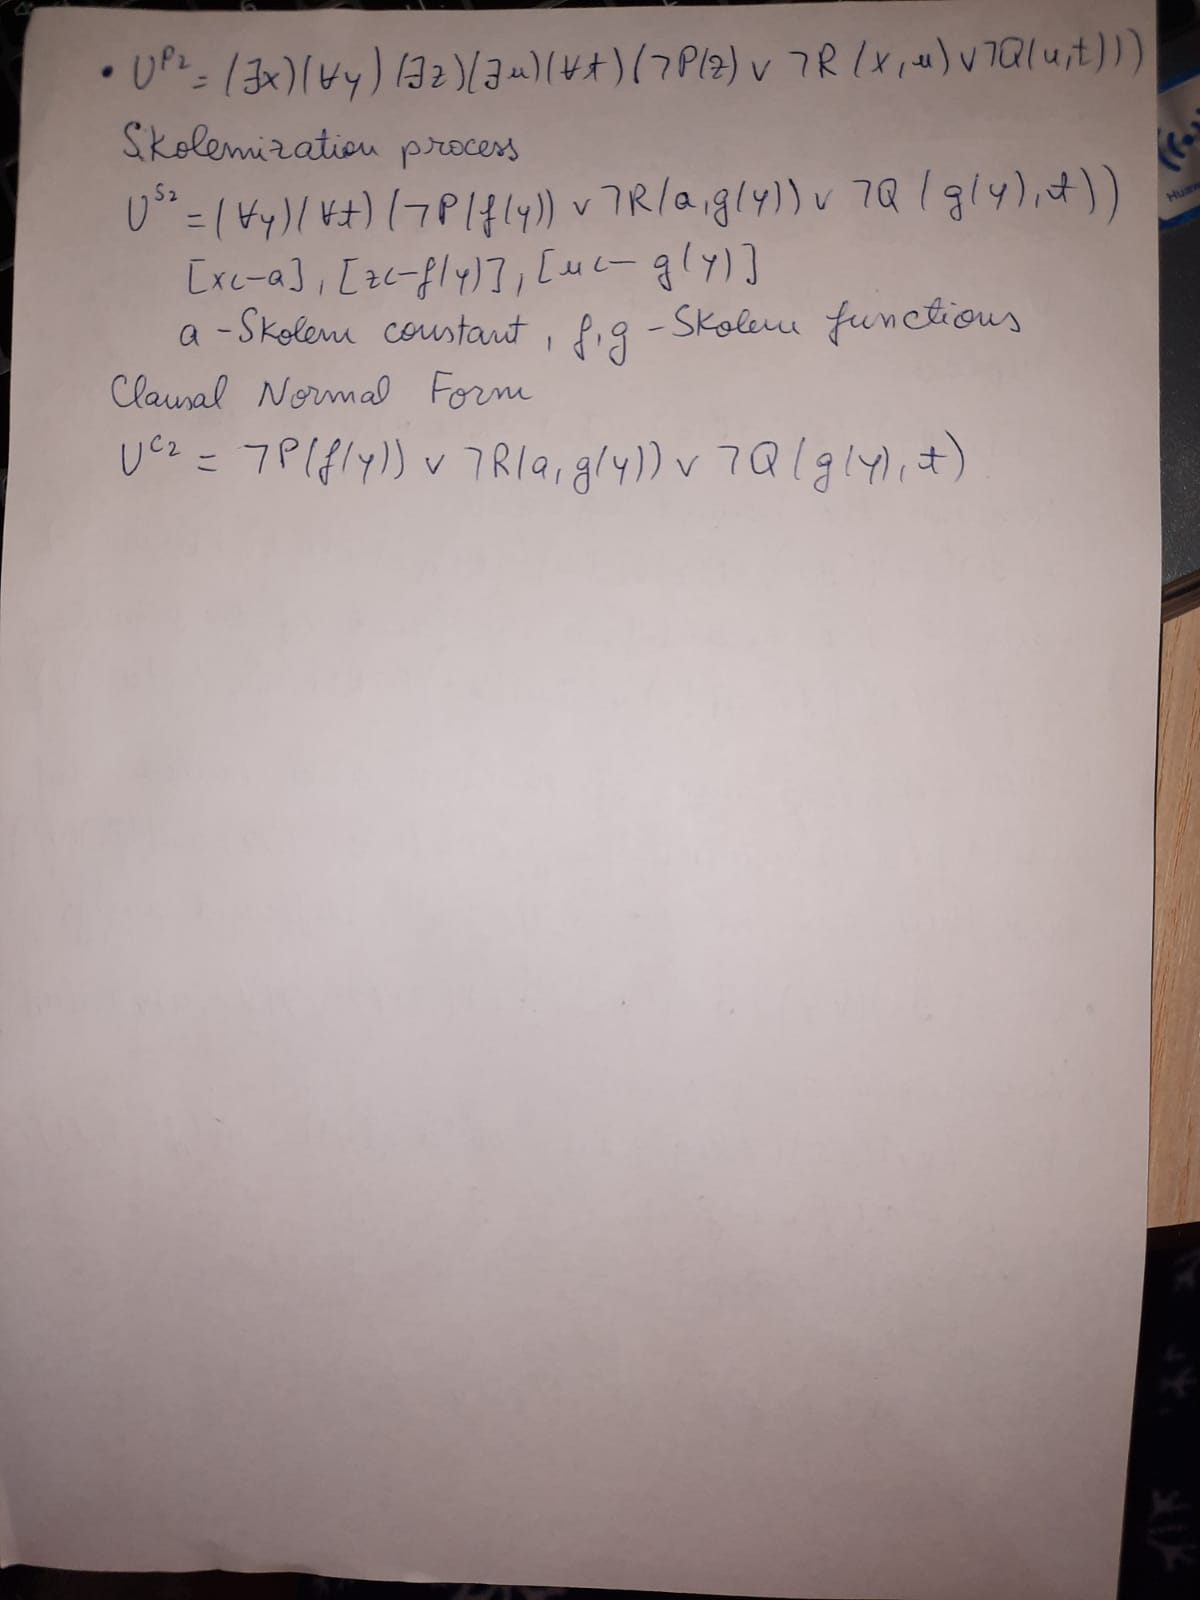 • U^P2 = (∃x)(∀y)(∃z)(∃u)(∀t)(¬P(z) ∨ ¬R(x,u) ∨ ¬Q(u,t)))
Skolemization process
U^S2 = (∀y)(∀t)(¬P(f(y)) ∨ ¬R(a,g(y)) ∨ ¬Q(g(y),t))
[x←a], [z←f(y)], [u← g(y)]
a - Skolem constant, f,g - Skolem functions
Clausal Normal Form
U^C2 = ¬P(f(y)) ∨ ¬R(a,g(y)) ∨ ¬Q(g(y),t)